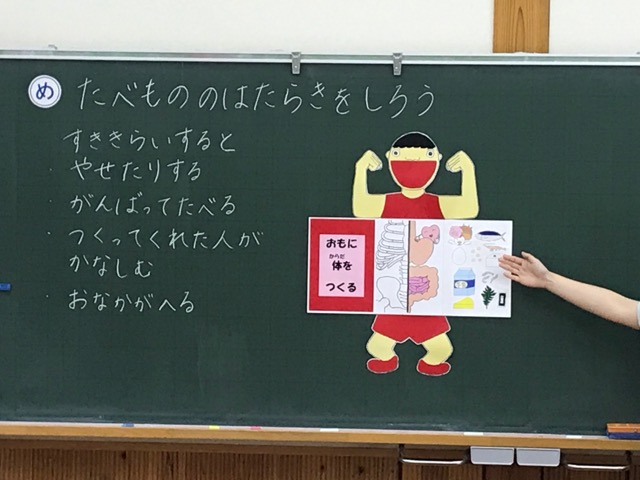 め たべもののはたらきをしろう
すききらいすると
・やせたりする
・がんばってたべる
・つくってくれた人が
かなしむ
・おなかがへる
おもに
からだ
体を
つくる